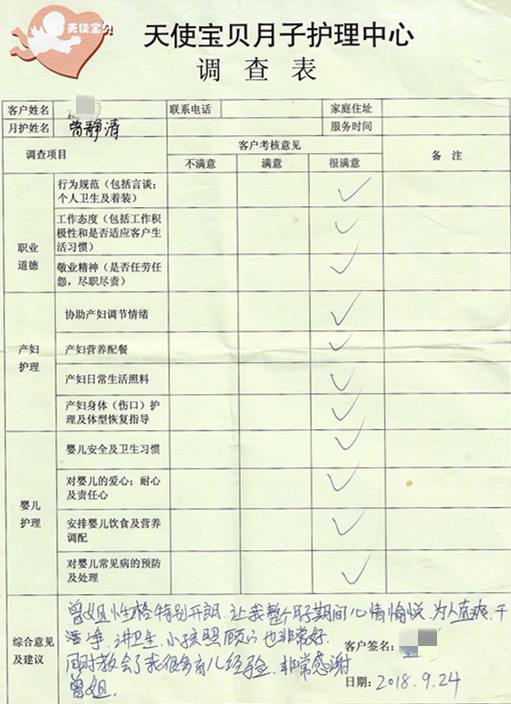 天使宝贝
天使宝贝月子护理中心
调查表
客户姓名 联系电话 家庭住址
月护姓名 曾静清 服务时间
调查项目 客户考核意见 备注
不满意 满意 很满意
职业
道德
行为规范（包括言谈；
个人卫生及着装）
工作态度（包括工作积
极性和是否适应客户生
活习惯）
敬业精神（是否任劳任
怨，尽职尽责）
产妇
护理
协助产妇调节情绪
产妇营养配餐
产妇日常生活照料
产妇身体（伤口）护
理及体型恢复指导
婴儿
护理
婴儿安全及卫生习惯
对婴儿的爱心；耐心
及责任心
安排婴儿饮食及营养
调配
对婴儿常见病的预防
及处理
综合意见
及建议
曾姐性格特别开朗，让我整个月子期间心情愉悦，为人直爽，干
活净，讲卫生，小孩照顾的也非常好，
同时教会了我很多育儿经验，非常感谢
曾姐。
客户签名：
日期：2018.9.24